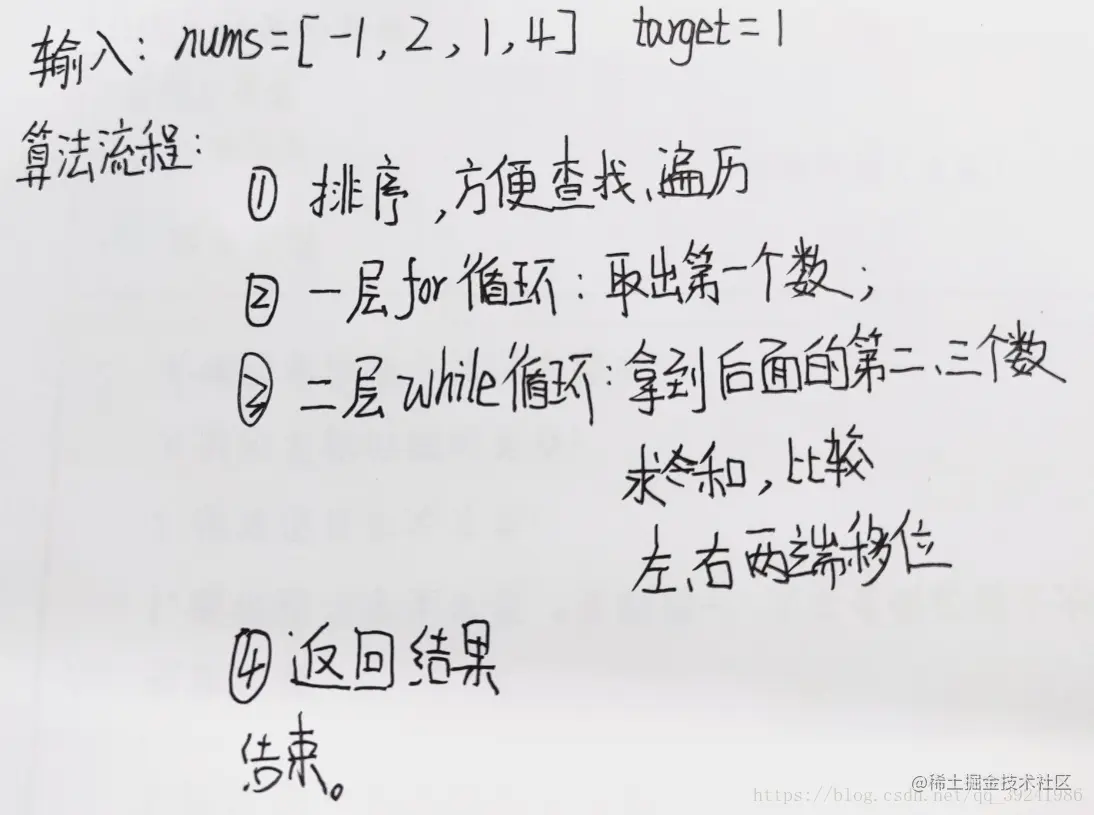 输入: nums=[-1,2,1,4] target=1
算法流程:
① 排序,方便查找、遍历
② 一层for循环:取出第一个数;
③ 二层while循环:拿到后面的第二、三个数
求总和,比较
左、右两端移位
④ 返回结果
结束。
@稀土掘金技术社区
https://blog.csdn.net/qq_39241986